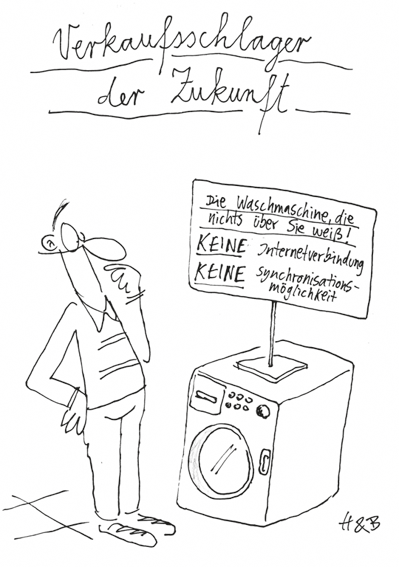 Verkaufsschlager
der Zukunft
Die Waschmaschine, die
nichts über Sie weiß!
KEINE Internetverbindung
KEINE Synchronisations-
möglichkeit
H&B